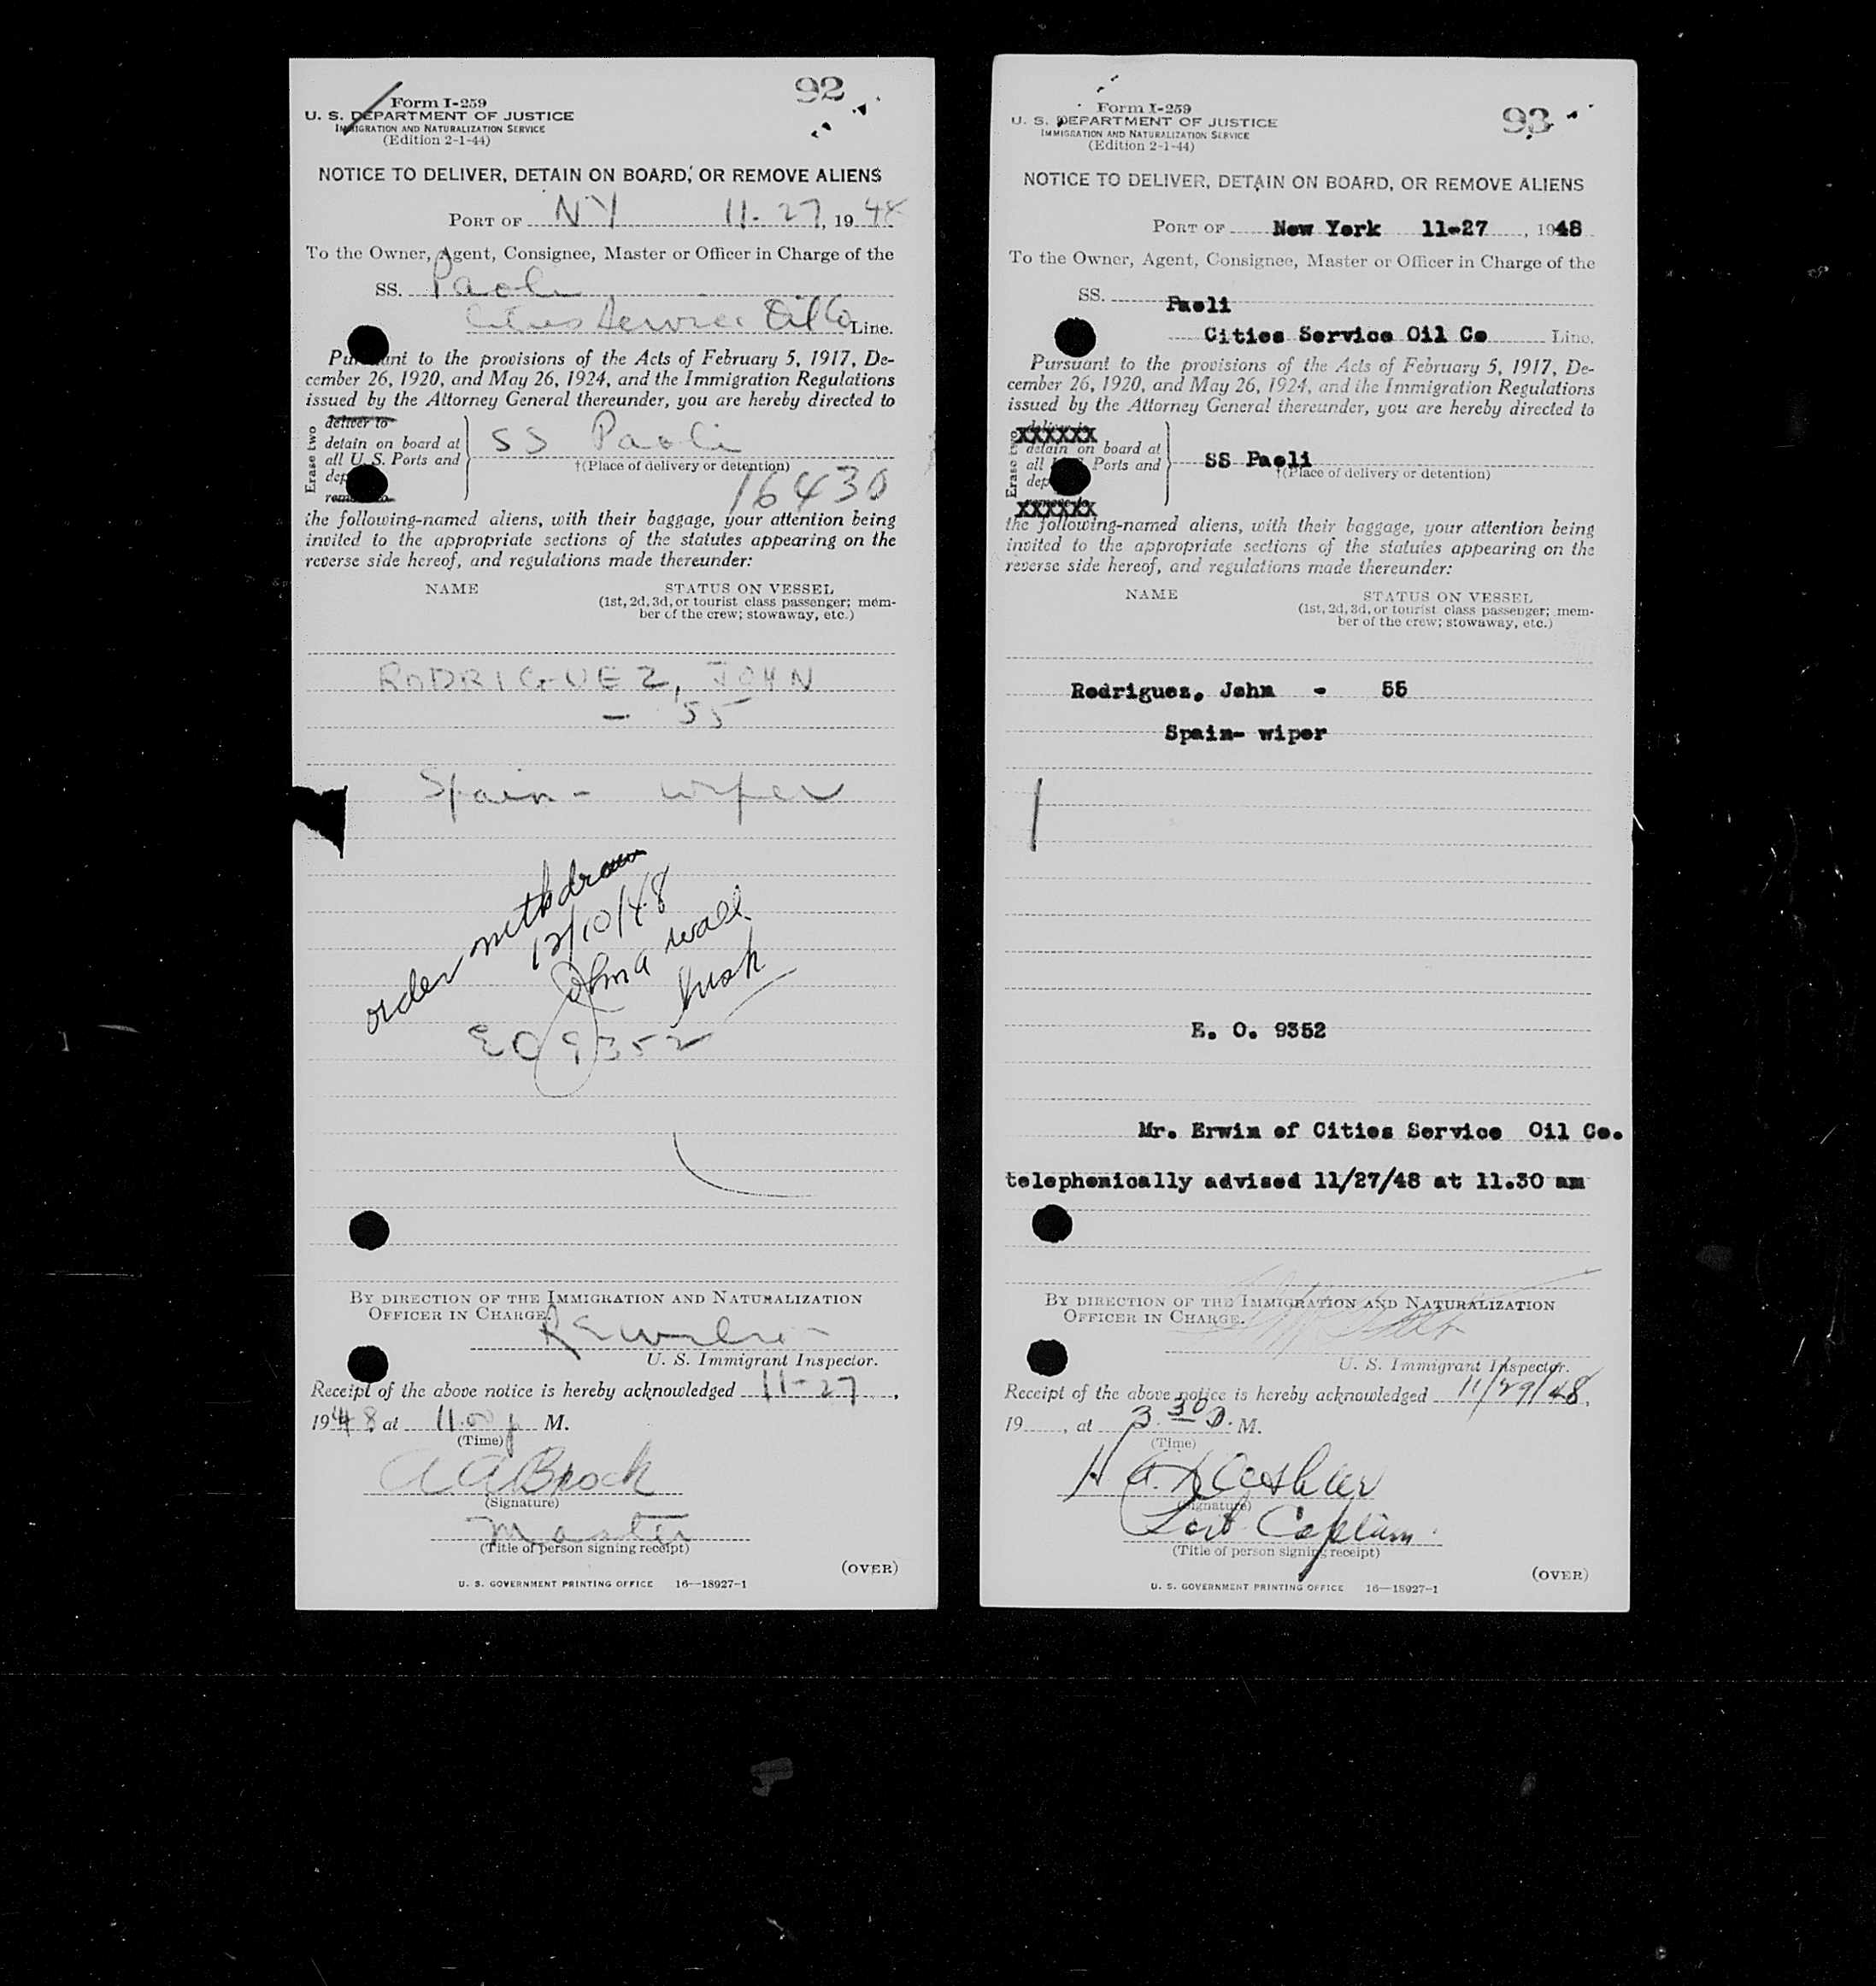 92
Form I-259
U. S. DEPARTMENT OF JUSTICE
IMMIGRATION AND NATURALIZATION SERVICE
(Edition 2-1-44)
NOTICE TO DELIVER, DETAIN ON BOARD, OR REMOVE ALIENS
PORT OF NY 11-27, 1948
To the Owner, Agent, Consignee, Master or Officer in Charge of the
SS. Paoli
Cities Service Oil Co Line.
Pursuant to the provisions of the Acts of February 5, 1917, De-
cember 26, 1920, and May 26, 1924, and the Immigration Regulations
issued by the Attorney General thereunder, you are hereby directed to
Erase two
deliver to
detain on board at
all U. S. Ports and
dep
remove to
SS Paoli
†(Place of delivery or detention)
16430
the following-named aliens, with their baggage, your attention being
invited to the appropriate sections of the statutes appearing on the
reverse side hereof, and regulations made thereunder:
NAME STATUS ON VESSEL
(1st, 2d, 3d, or tourist class passenger; mem-
ber of the crew; stowaway, etc.)
RODRIGUEZ, JOHN
- 55
Spain - wiper
order withdrawn
12/10/48
John A Wall
Insp
EO 9352
BY DIRECTION OF THE IMMIGRATION AND NATURALIZATION
OFFICER IN CHARGE.
U. S. Immigrant Inspector.
Receipt of the above notice is hereby acknowledged 11-27,
1948 at 11.00 p M.
(Time)
A. A. Brock
(Signature)
Master
(Title of person signing receipt)
(OVER)
U. S. GOVERNMENT PRINTING OFFICE 16—18927-1
93
Form I-259
U. S. DEPARTMENT OF JUSTICE
IMMIGRATION AND NATURALIZATION SERVICE
(Edition 2-1-44)
NOTICE TO DELIVER, DETAIN ON BOARD, OR REMOVE ALIENS
PORT OF New York 11-27, 1948
To the Owner, Agent, Consignee, Master or Officer in Charge of the
SS. Paoli
Cities Service Oil Co Line.
Pursuant to the provisions of the Acts of February 5, 1917, De-
cember 26, 1920, and May 26, 1924, and the Immigration Regulations
issued by the Attorney General thereunder, you are hereby directed to
Erase two
deliver to
XXXXXX
detain on board at
all U. S. Ports and
dep
remove to
XXXXXX
SS Paoli
†(Place of delivery or detention)
the following-named aliens, with their baggage, your attention being
invited to the appropriate sections of the statutes appearing on the
reverse side hereof, and regulations made thereunder:
NAME STATUS ON VESSEL
(1st, 2d, 3d, or tourist class passenger; mem-
ber of the crew; stowaway, etc.)
Rodriguez, John - 55
Spain- wiper
E. O. 9352
Mr. Erwin of Cities Service Oil Co.
telephonically advised 11/27/48 at 11.30 am
BY DIRECTION OF THE IMMIGRATION AND NATURALIZATION
OFFICER IN CHARGE.
U. S. Immigrant Inspector.
Receipt of the above notice is hereby acknowledged 11/29/48,
19 , at 3.30 p. M.
(Time)
(Signature)
Port Captain.
(Title of person signing receipt)
(OVER)
U. S. GOVERNMENT PRINTING OFFICE 16—18927-1